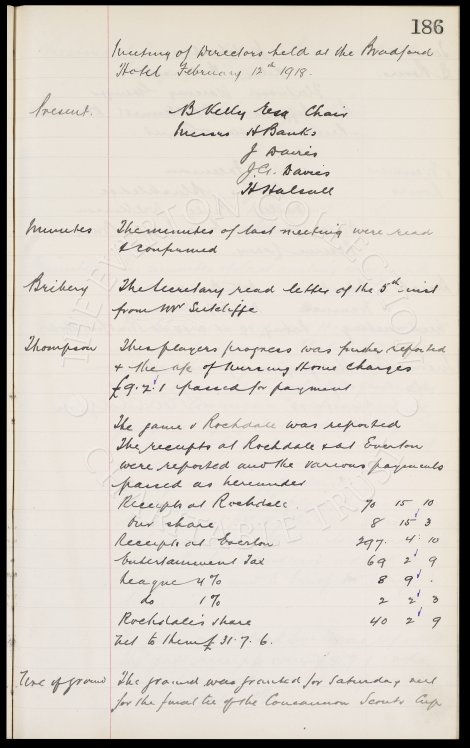 186
Meeting of Directors held at the Bradford
Hotel February 12th 1918.
Present. B Kelly Esq Chair
Messrs H Banks
J Davies
J.G. Davies
H Halsall
Minutes The minutes of last meeting were read
& confirmed
Bribery The Secretary read letter of the 5th inst
from Mr Sutcliffe
Thompson This players progress was further reported
& the a/c of Nursing Home Charges
£9.2.1 passed for payment
The game v Rochdale was reported
The receipts at Rochdale & at Everton
were reported and the various payments
passed as hereunder
Receipts at Rochdale 70 15 10
Our share 8 15 3
Receipts at Everton 297. 4 10
Entertainment Tax 69 2 9
League 4% 8 9 .
do 1% 2 2 3
Rochdale's share 40 2 9
Net to them £31.7.6.
Use of ground The ground was granted for Saturday next
for the final tie of the Concannon Scouts Cup
THE EVERTON COLLECTION
CHARITABLE TRUST